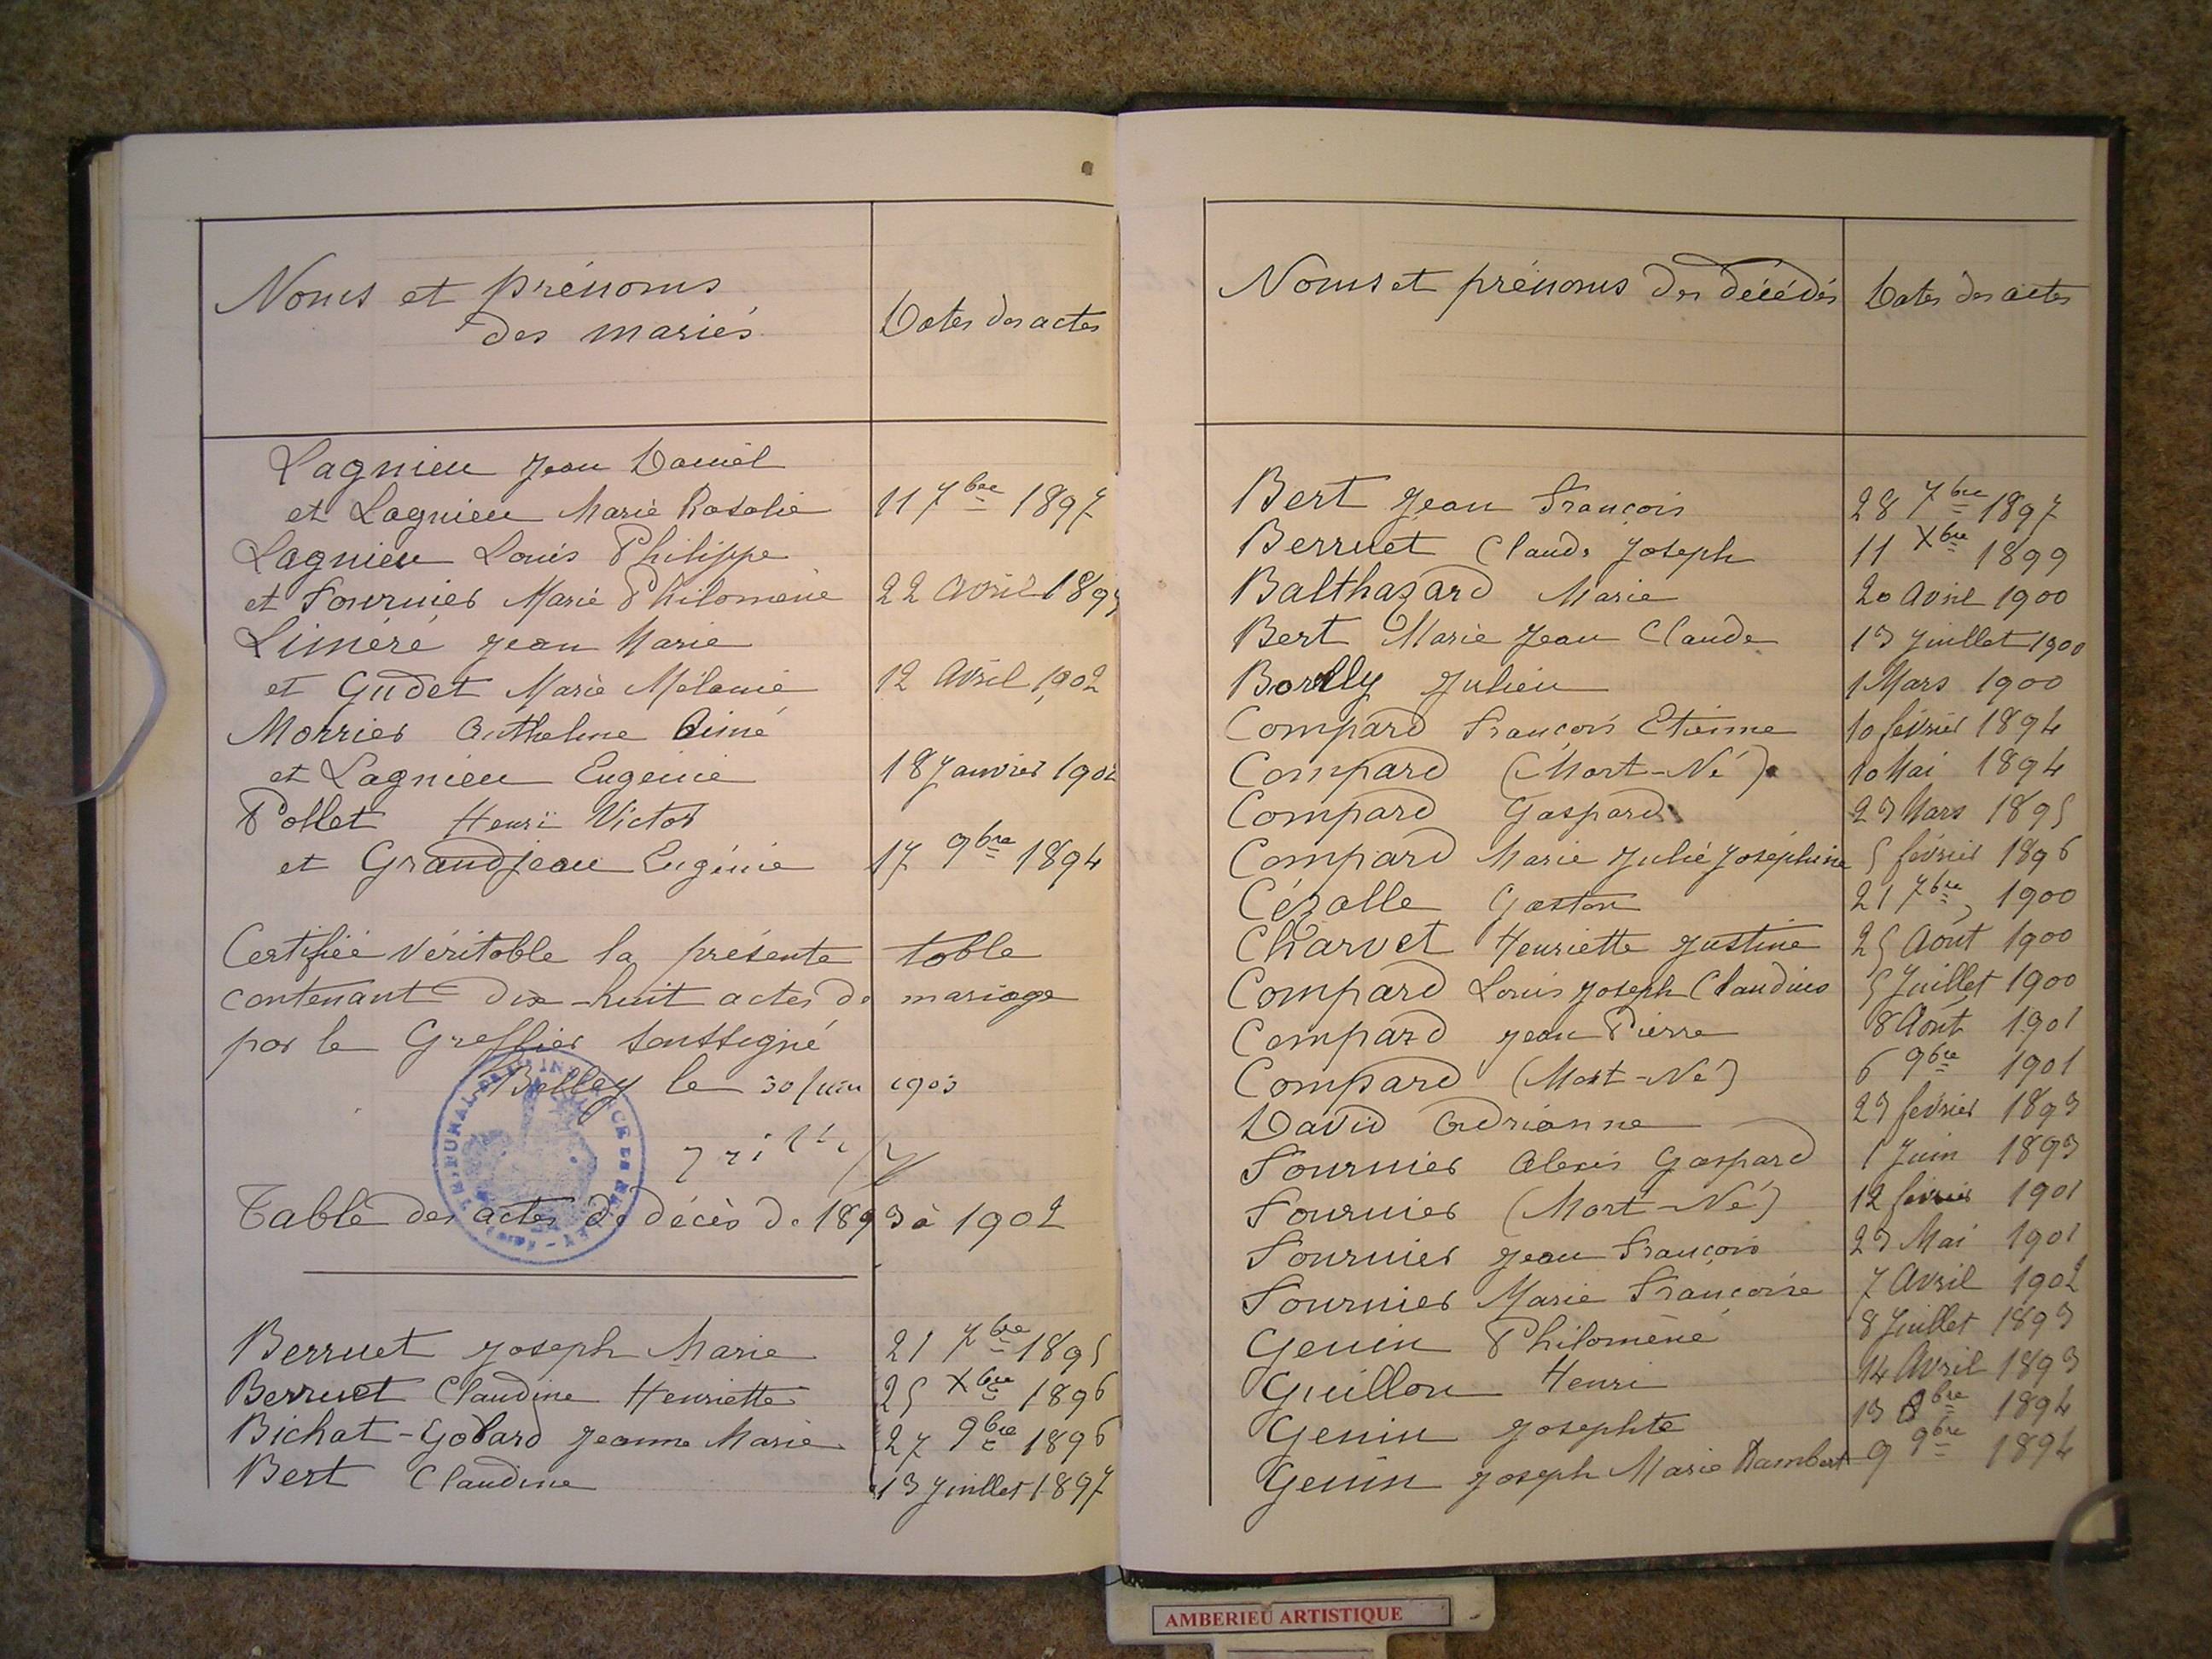 Noms et prénoms
des mariés
Dates des actes
Lagnieu Jean Daniel
et Lagnieu Marie Rosalie 11 7bre 1897
Lagnieu Louis Philippe
et Fournier Marie Philomène 22 Avril 189
Liméré Jean Marie
et Gudet Marie Mélanie 12 Avril 1902
Morrier Anthelme Aimé
et Lagnieu Eugénie 18 Janvier 1902
Pollet Henri Victor
et Grandjean Eugénie 17 9bre 1894
Certifiée véritable la présente table
contenant dix-huit actes de mariage
par le Greffier soussigné
Belley le 30 Juin 1903
Table des actes de décès de 1893 à 1902
Berruet Joseph Marie 21 7bre 1895
Berruet Claudine Henriette 25 Xbre 1896
Bichat-Gobard Jeanne Marie 27 9bre 1896
Bert Claudine 13 Juillet 1897
Noms et prénoms des décédés
Dates des actes
Bert Jean François 28 7bre 1897
Berruet Claude Joseph 11 Xbre 1899
Balthazard Marie 20 Avril 1900
Bert Marie Jean Claude 13 Juillet 1900
Borlly Julien 1 Mars 1900
Compard François Etienne 10 février 1894
Compard (Mort-Né) 10 Mai 1894
Compard Gaspard 23 Mars 1895
Compard Marie Julie Joséphine 5 février 1896
Cézalle Gaston 21 7bre 1900
Charvet Henriette Justine 25 Août 1900
Compard Louis Joseph Claudius 5 Juillet 1900
Compard Jean Pierre 8 Août 1901
Compard (Mort-Né) 6 9bre 1901
David Adrianne 23 février 1893
Fournier Alexis Gaspard 1 Juin 1893
Fournier (Mort-Né) 12 février 1901
Fournier Jean François 23 Mai 1901
Fournier Marie Françoise 7 Avril 1902
Genin Philomène 8 Juillet 1893
Guillon Henri 14 Avril 1893
Genin Josephte 13 8bre 1894
Genin Joseph Marie Rambert 9 9bre 1894
AMBERIEU ARTISTIQUE